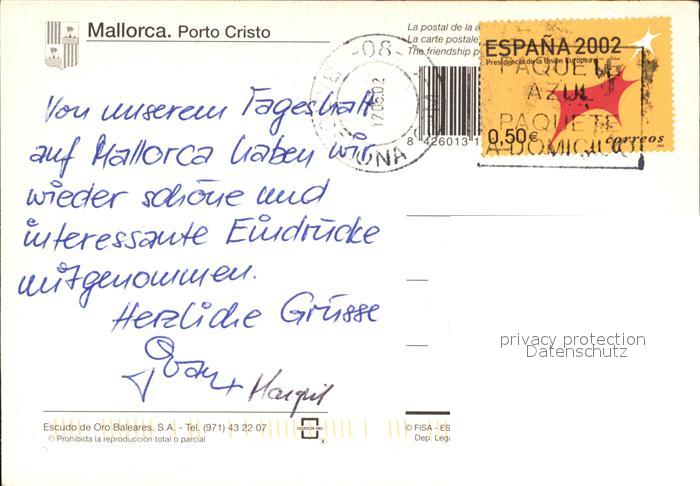 Mallorca. Porto Cristo
Von unserem Tageshalt
auf Mallorca haben wir
wieder schöne und
interessante Eindrücke
mitgenommen.
Herzliche Grüsse
+ Margrit
Escudo de Oro Baleares. S.A. - Tel. (971) 43 22 07
© Prohibida la reproducción total o parcial
La postal de la a
La carte postale
The friendship p
8 426013 1
© FISA - ES
Dep. Lega
ESPAÑA 2002
Presidencia de la Unión Europea
0,50€
correos
-08-
17.06.02
PAQUETE
AZUL
PAQUETE
A DOMICILIO
privacy protection
Datenschutz